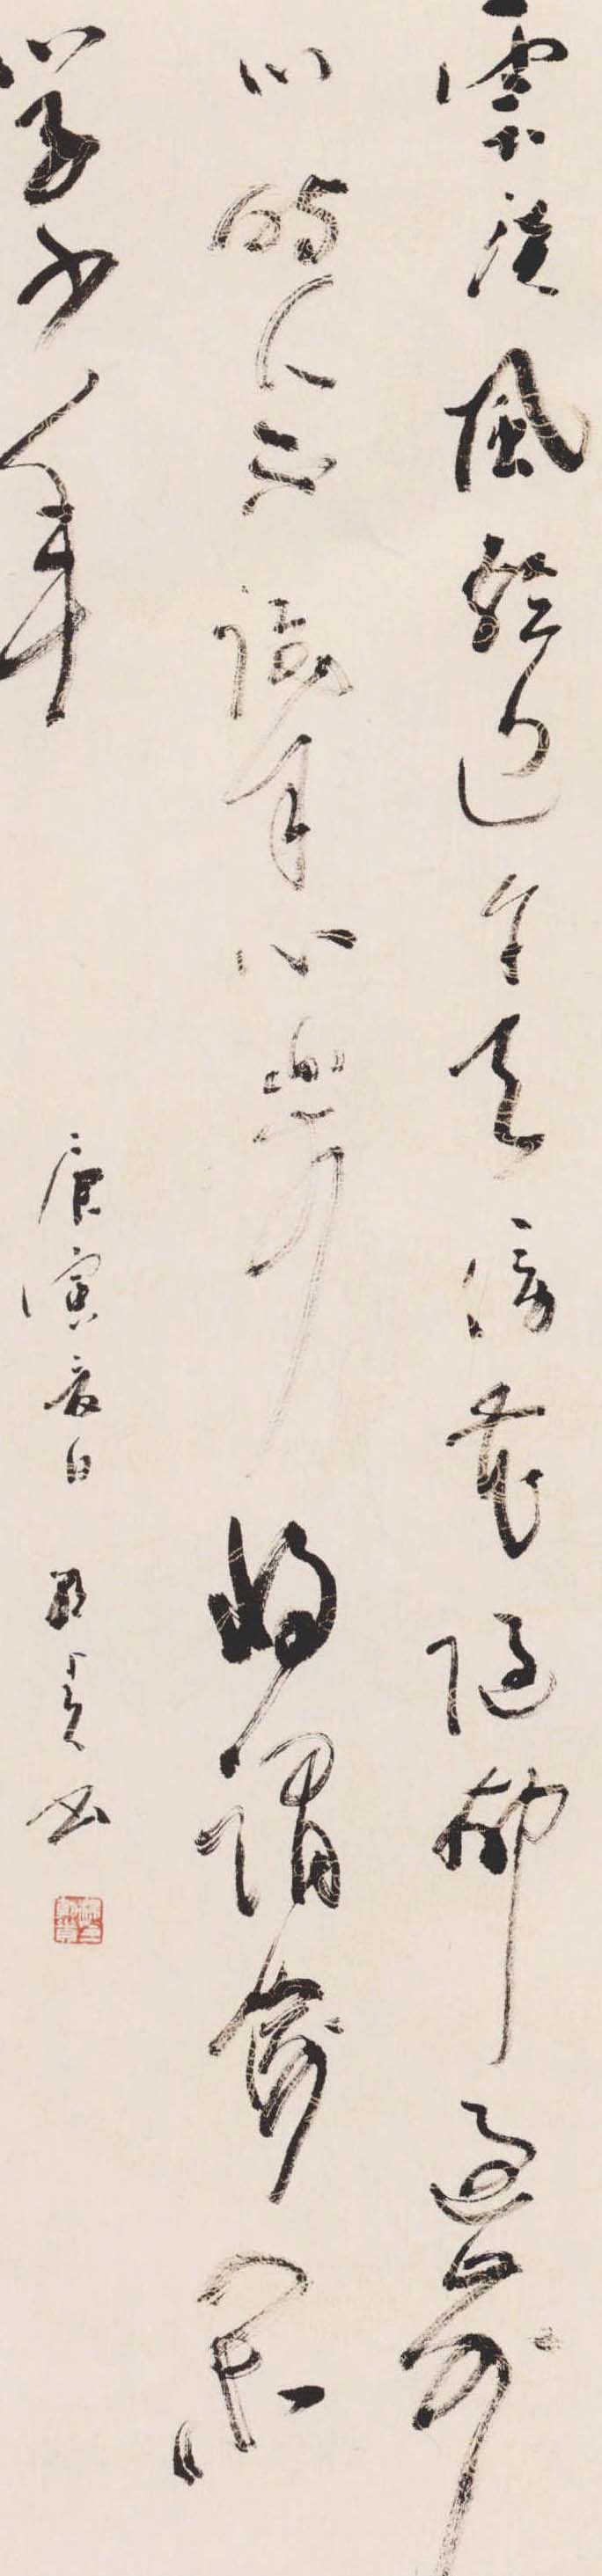 雲淡風輕近午天傍花隨柳過前
川時人不識予心樂將謂偷閑
學少年
庚寅春日 書